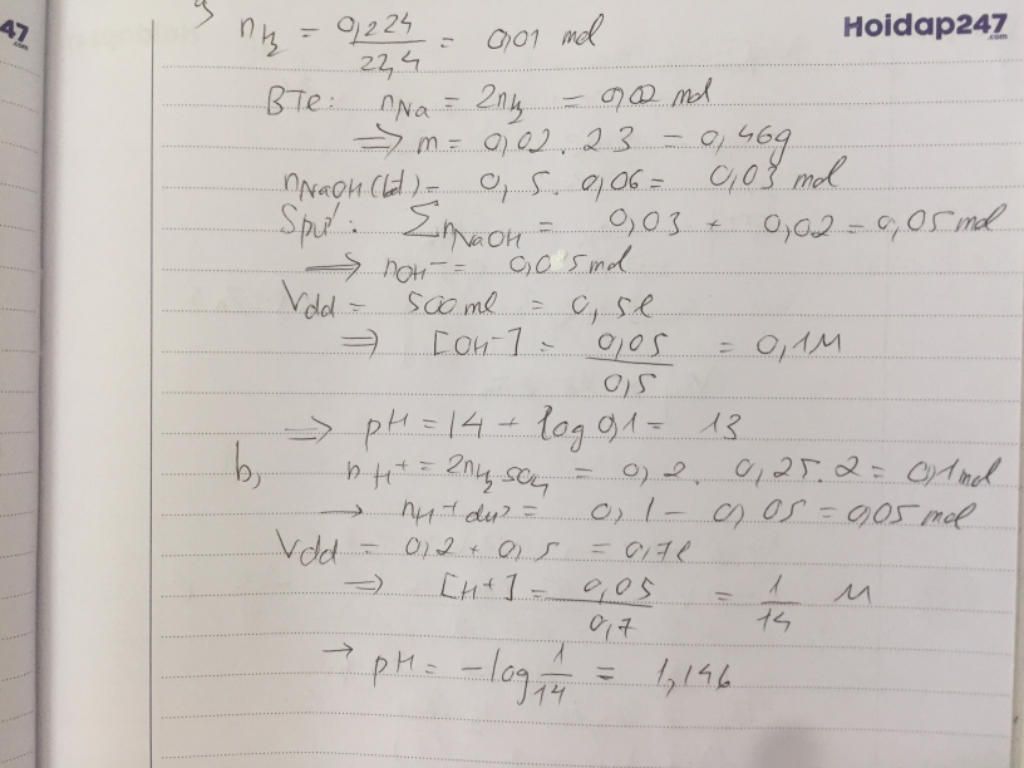 47
.com
Hoidap247
.com
nH2 = 0,224/22,4 = 0,01 mol
BTe: nNa = 2nH2 = 0,02 mol
⇒ m = 0,02 . 23 = 0,46g
nNaOH(bđ) = 0,5 . 0,06 = 0,03 mol
Spư: ΣnNaOH = 0,03 + 0,02 = 0,05 mol
⇒ nOH- = 0,05 mol
Vdd = 500 ml = 0,5l
⇒ [OH-] = 0,05/0,5 = 0,1M
⇒ pH = 14 + log 0,1 = 13
b, nH+ = 2nH2SO4 = 0,2 . 0,25 . 2 = 0,1 mol
→ nH+ dư = 0,1 - 0,05 = 0,05 mol
Vdd = 0,2 + 0,5 = 0,7l
⇒ [H+] = 0,05/0,7 = 1/14 M
→ pH = -log 1/14 = 1,146